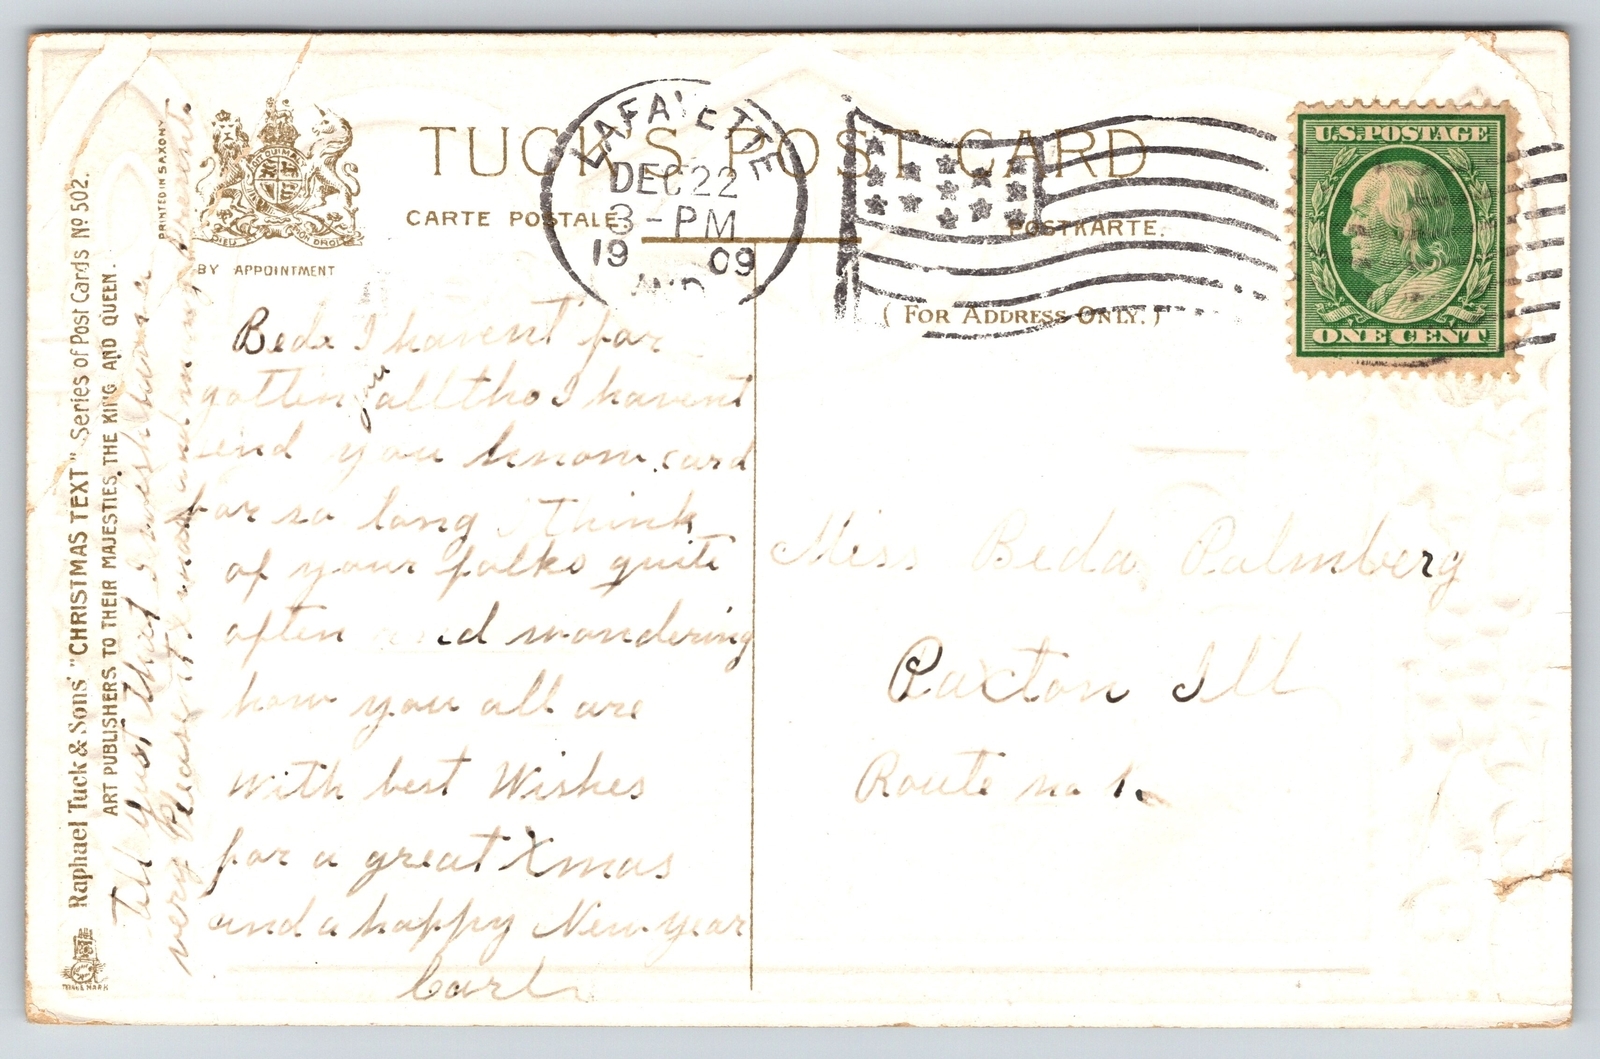 TUCK'S POST CARD
CARTE POSTALE
POSTKARTE.
(FOR ADDRESS ONLY.)
PRINTED IN SAXONY
DIEU ET MON DROIT
BY APPOINTMENT
LAFAYETTE
DEC 22
3-PM
1909
IND
U.S. POSTAGE
ONE CENT
Raphael Tuck & Sons' "CHRISTMAS TEXT" Series of Post Cards No 502.
ART PUBLISHERS TO THEIR MAJESTIES THE KING AND QUEEN.
TRADE MARK
Beda I havent for
gotten you alltho I havent
send you know card
for so long I think
of your folks quite
often and wondering
how you all are
With best Wishes
for a great Xmas
and a happy New year
Carl
Tell Just that I wish him a
very Pleasent Xmas and many presents
Miss Beda Palmberg
Paxton Ill
Route no 1.